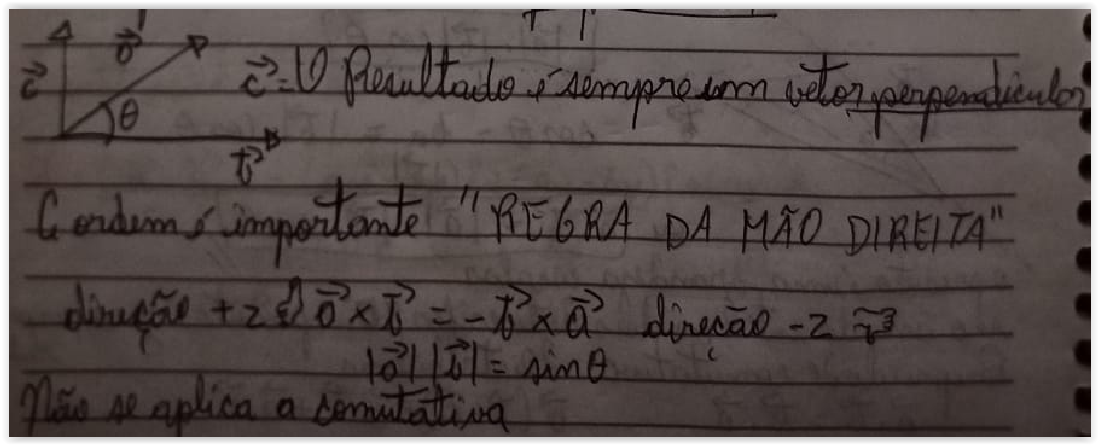 c⃗ a⃗ θ b⃗
c⃗ = O Resultado é sempre um vetor perpendicular
A ordem é importante "REGRA DA MÃO DIREITA"
direção +z a⃗ × b⃗ = -b⃗ × a⃗ direção -z
|a⃗| |b⃗| = sinθ
Não se aplica a comutativa